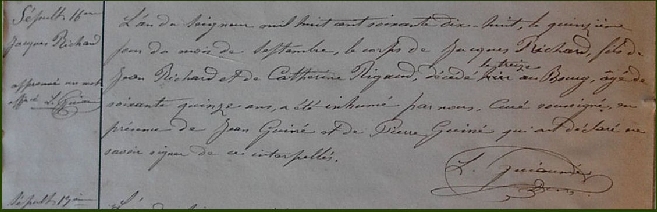 Sépult. 16me
Jacques Richard
approuvé un mot
L'an du Seigneur mil huit cent soixante dix-huit, le quinzième
jour du mois de septembre, le corps de Jacques Richard, fils de
Jean Richard et de Catherine Rigaud, décédé hier le treize au Bourg, âgé de
soixante quinze ans, a été inhumé par nous, Curé soussigné, en
présence de Jean Guiné et de Pierre Guiné qui ont déclaré ne
savoir signer de ce interpellés.
L.
Sépult. 17me